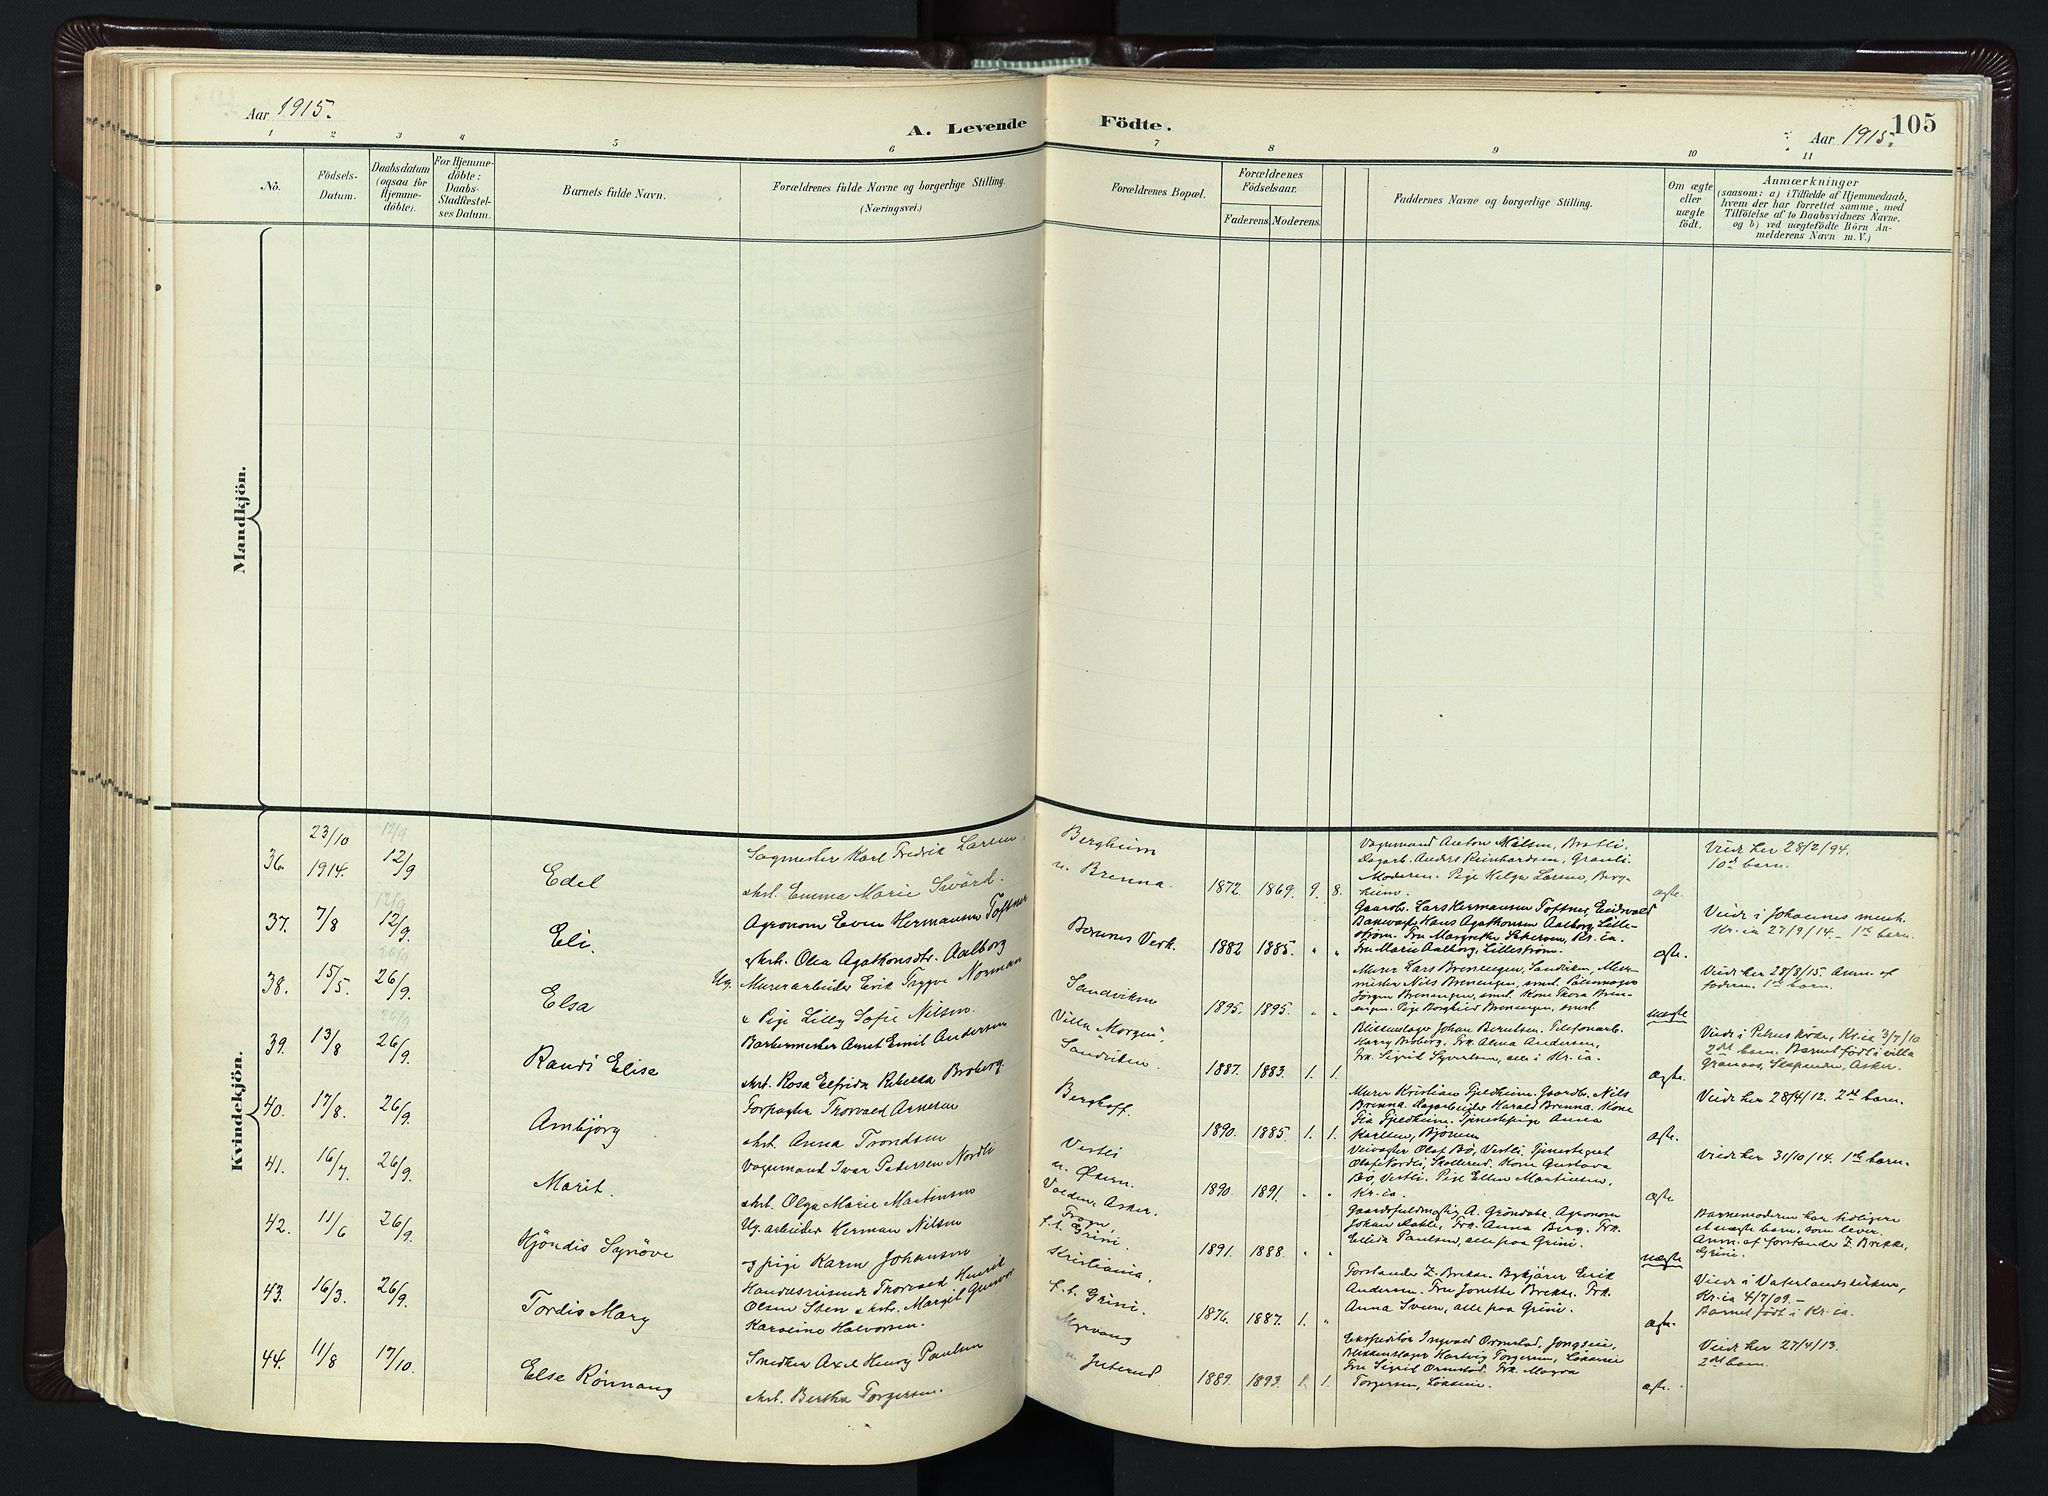 Aar 1915.
A. Levende Födte.
Aar 1915.
105
1 2 3 4 5 6 7 8 9 10 11
No.
Födsels-Datum.
Daabsdatum (ogsaa for Hjemmedöbte).
For Hjemmedöbte: Daabs-Stadfæstelses Datum.
Barnets fulde Navn.
Forældrenes fulde Navne og borgerlige Stilling.
(Næringsvei.)
Forældrenes Bopæl.
Forældrenes Födselsaar.
Faderens. Moderens.
Faddernes Navne og borgerlige Stilling.
Om ægte eller uægte födt.
Anmærkninger
(saasom: a) i Tilfælde af Hjemmedaab,
hvem der har forrettet samme, med
Tilföielse af to Daabsvidners Navne.
og b) ved uægtefödte Börn An-
melderens Navn m. V.)
Mandkjön.
Kvindekjön.
36. 23/10 1914. 12/9 Edel
Sagmester Karl Fredrik Larsen
&hst. Emma Marie Swärd.
Bergheim
u. Brenna.
1872. 1869. 9. 8.
Vognmand Anton Nilsen, Bratli.
Dagarb. Anders Reinhardsen, Granli.
Moderen. Pige Helga Larsen, Berg-
heim.
ægte.
Viedt her 28/2/94.
10de barn.
37. 7/8 12/9. Eli.
Agronom Even Hermansen Toftner
&hst. Olea Agathonsdtr. Aalborg
Bærums Verk.
1882 1885. " "
Gaardbr. Lars Hermansen Toftner, Eidsvold
Banevogter Hans Agathonsen Aalborg, Lille-
strøm. Fru Margrethe Kr.ia.
Fru Marie Aalborg, Lillestrøm.
ægte.
Viedt i Johannes menh.
Kr.ia 27/9/14. 1ste barn.
38. 15/5. 26/9. Elsa
Ug. Murerarbeider Erik Trygve Norman
& Pige Lilly Sofie Nilsen.
Sandviken
1895. 1895. " "
Murer Lars Breningen, Sandviken, Murer-
mester Nils Breningen, smst. Salmager
Jörgen Breningen, smst. Kone Thora Bren-
ingen. Pige Borghild Breningen, smst.
uægte
Viedt her 28/8/15. Anm. af
faderen. 1ste barn.
39. 13/8 26/9. Randi Elise
Barbermester Arnt Emil Andersen
&hst. Rosa Elfrida Rebekka Broberg.
Villa "Morgen",
Sandviken.
1887. 1883. 1. 1.
Blikkenslager Johan Berntsen. Telefonarb.
Harry Broberg. Frk. Alma Andersen,
Frk. Sigrid Syvertsen, alle i Kr.ia.
ægte.
Viedt i Petruskirken, Kr.ia 3/7/10
2det barn. Barnet født i villa
Granaas, Skøpenden, Asker.
40. 17/8. 26/9. Arnbjörg
Forpagter Thorvald Arnesen
&hst. Anna Trondsen
Berghoff.
1890. 1885. 1. 1.
Murer Kristian Fjeldheim. Gaardb. Nils
Brenna. Dagarbeider Harald Brenna. Kone
Fia Fjeldheim. Tjenestepige Anna
Karlsen, Bjørum
ægte.
Viedt her 28/4/12. 2det barn.
41. 16/7. 26/9. Marit.
Vognmand Ivar Pedersen Nordli
&hst. Olga Marie Martinsen
Vestli
u. Østern.
1890. 1891. " "
Veivogter Olaf Bø, Vestli. Tjenestegut
Olaf Nordli, Skollerud. Kone Gustava
Bø, Vestli. Pige Ellen Martinsen,
Kr.ia.
ægte
Viedt her 31/10/14. 1ste barn.
42. 11/6 26/9. Hjördis Synöve
Ug. arbeider Herman Nilsen
& pige Karen Johansen
Valden, Asker.
Frogn,
f.t. Grini.
1891. 1888. " "
Gaardsfuldmægtig A. Gröndahl. Agronom
Johan Dahle, Frk. Anna Berg. Frk.
Elida Paulsen, alle paa Grini.
uægte
Barnemoderen har tidligere
et uægte barn, som lever.
Anm. af forstander Z. Brekke,
Grini.
43. 16/3. 26/9. Tordis Mary
Handelsreisende Thorvald Henrik
Olsen Sten &hst. Margit
Karoline Halvorsen.
Kristiania,
f.t. Grini.
1876. 1887. 1. "
Forstander Z. Brekke. Erik
Andersen. Fru Jonette Brekke. Frk.
Anna Sveen, alle paa Grini.
ægte.
Viedt i Vaterlands kirken,
Kr.ia 4/7/09.
Barnet født i Kr.ia.
44. 11/8 17/10. Else Rönnaug
Snedker Axel Henry Paulsen
&hst. Bertha Torgersen.
Myrvang
u. Juterud
1889. 1893. 1. 1.
Ekspeditör Ingvald Ormstad, Jongsei,
Blikkenslager Hartvig Torgersen, Løkseie
Fru Sigrid Ormstad. Frk. Magda
Torgersen, Løkseie.
ægte.
Viedt her 27/4/13.
2det barn.